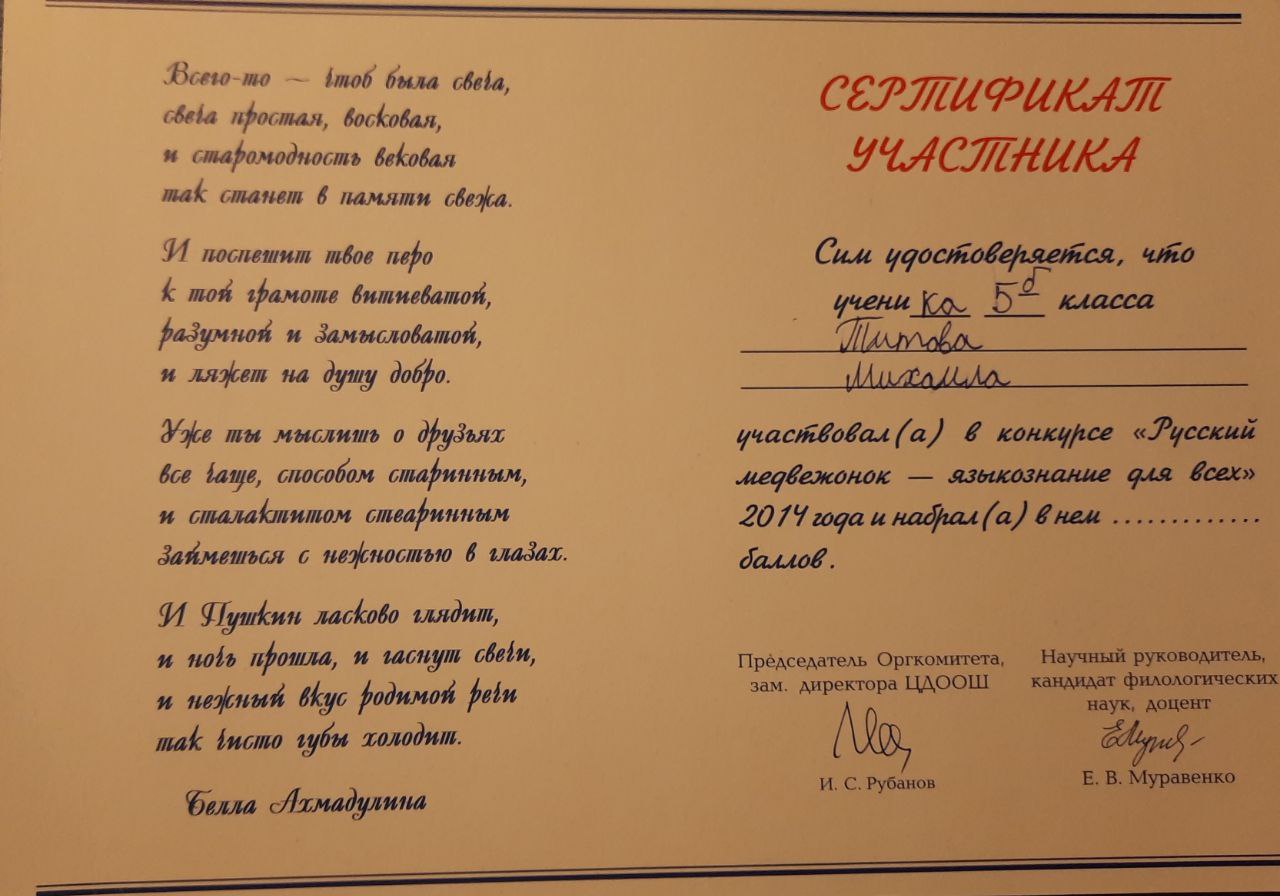 Всего-то — чтоб была свеча,
свеча простая, восковая,
и старомодность вековая
так станет в памяти свежа.
И поспешит твое перо
к той грамоте витиеватой,
разумной и замысловатой,
и ляжет на душу добро.
Уже ты мыслишь о друзьях
все чаще, способом старинным,
и сталактитом стеаринным
займешься с нежностью в глазах.
И Пушкин ласково глядит,
и ночь прошла, и гаснут свечи,
и нежный вкус родимой речи
так чисто губы холодит.
Белла Ахмадулина
СЕРТИФИКАТ
УЧАСТНИКА
Сим удостоверяется, что
учени ка 5б класса
Титова
Михаила
участвовал(а) в конкурсе «Русский
медвежонок — языкознание для всех»
2014 года и набрал(а) в нем .............
баллов.
Председатель Оргкомитета,
зам. директора ЦДООШ
И. С. Рубанов
Научный руководитель,
кандидат филологических
наук, доцент
Е. В. Муравенко